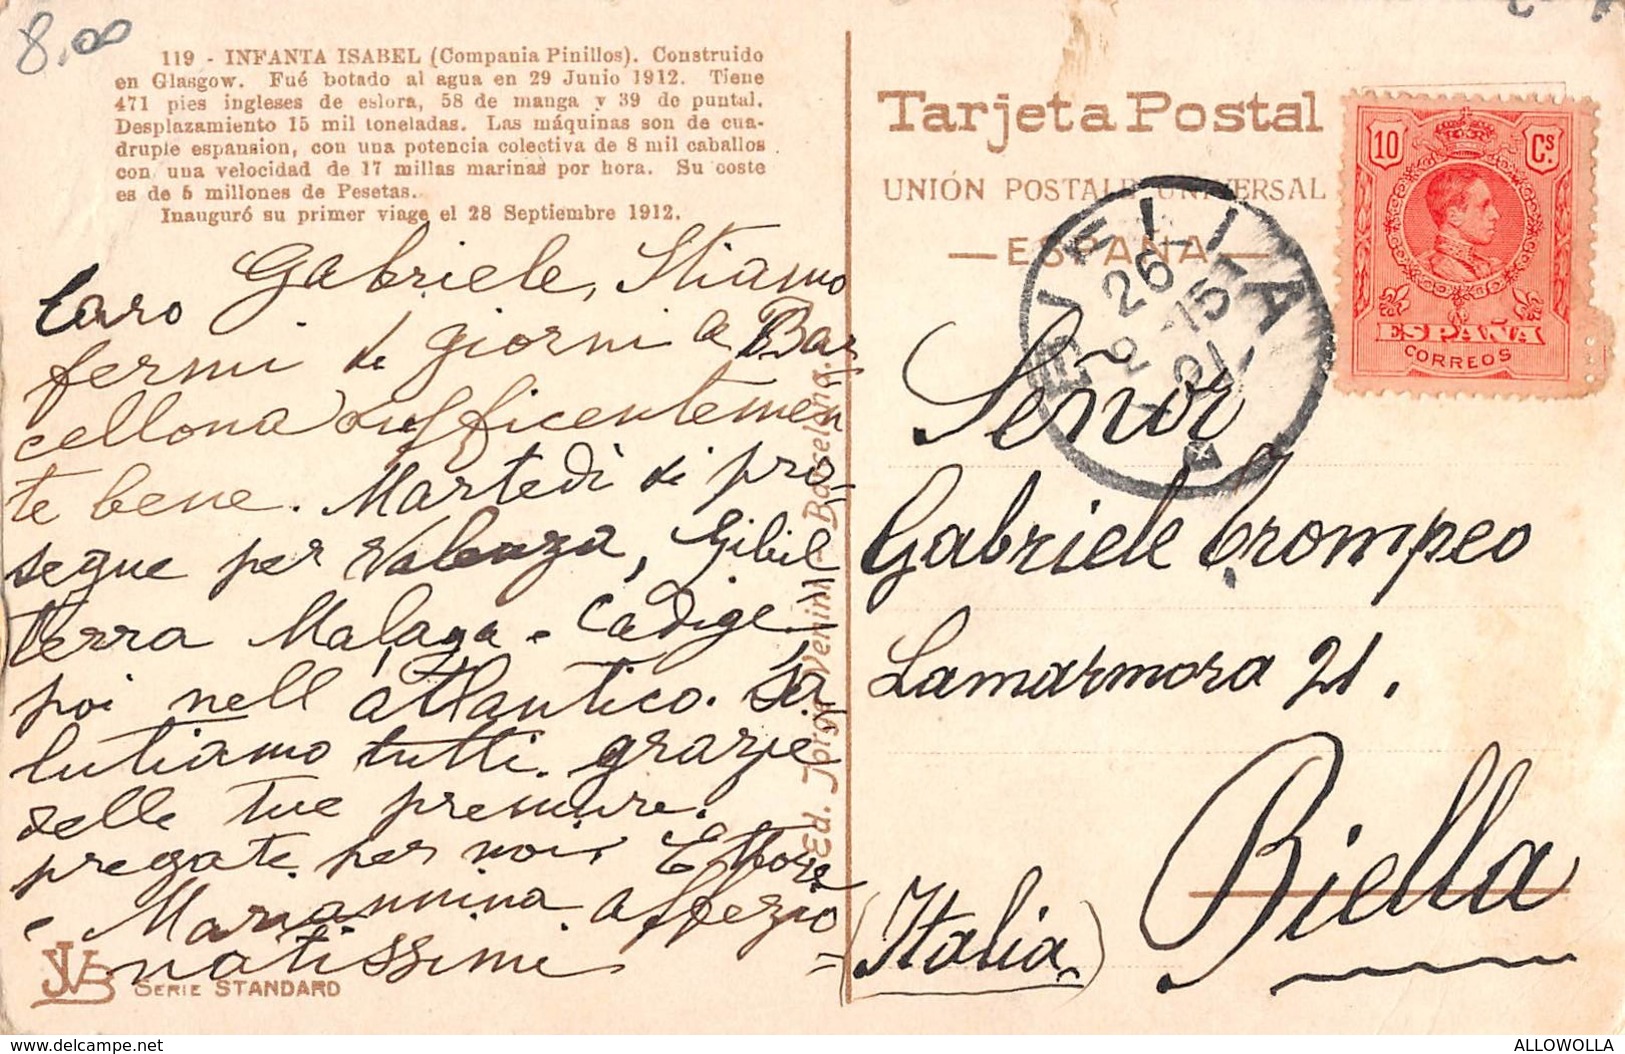 8,00
119 - INFANTA ISABEL (Compania Pinillos). Construido
en Glasgow. Fué botado al agua en 29 Junio 1912. Tiene
471 pies ingleses de eslora, 58 de manga y 39 de puntal.
Desplazamiento 15 mil toneladas. Las máquinas son de cua-
druple espansion, con una potencia colectiva de 8 mil caballos
con una velocidad de 17 millas marinas por hora. Su coste
es de 5 millones de Pesetas.
Inauguró su primer viage el 28 Septiembre 1912.
Caro Gabriele, Stiamo
fermi di giorni a Bar
cellona sufficentemen
te bene. Martedì si pro-
segue per Valenza, Gibil
terra Malaga e Cadige
poi nell atlantico. Sa
lutiamo tutti. grazie
delle tue premure.
pregate per noi. Ettore
e Mariannina affezio
natissimi
JVB
SERIE STANDARD
Ed. Jorge Venini - Barcelona.
Tarjeta Postal
UNIÓN POSTALE UNIVERSAL
— ESPAÑA —
BIELLA
26
2-15
21
10 Cs.
ESPAÑA
CORREOS
Señor
Gabriele Crompeo
Lamarmora 21.
Biella
(Italia)
http://www.delcampe.net
ALLOWOLLA